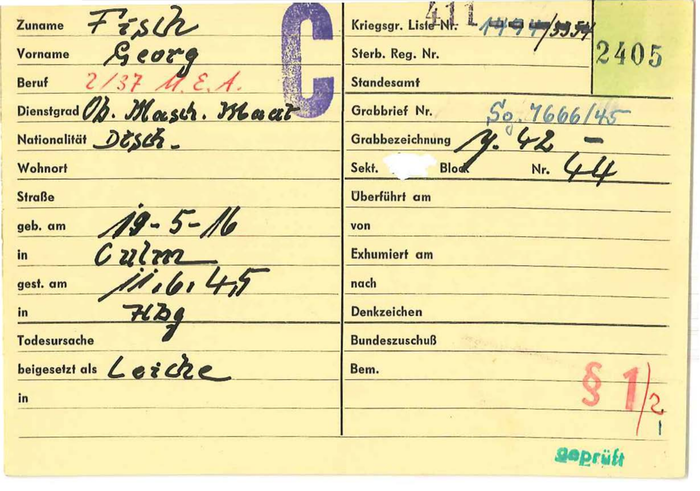 Zuname Fisch
Vorname Georg
Beruf 2/37 M.E.A.
Dienstgrad Ob. Masch. Maat
Nationalität Dtsch.
Wohnort
Straße
geb. am 19-5-16
in Culm
gest. am 11.6.45
in Hbg
Todesursache
beigesetzt als Leiche
in
C
411
Kriegsgr. Liste Nr. /3354
2405
Sterb. Reg. Nr.
Standesamt
Grabbrief Nr. Sg. 7666/45
Grabbezeichnung y. 42 –
Sekt. Block Nr. 44
Überführt am
von
Exhumiert am
nach
Denkzeichen
Bundeszuschuß
Bem.
§ 1/2
1
geprüft